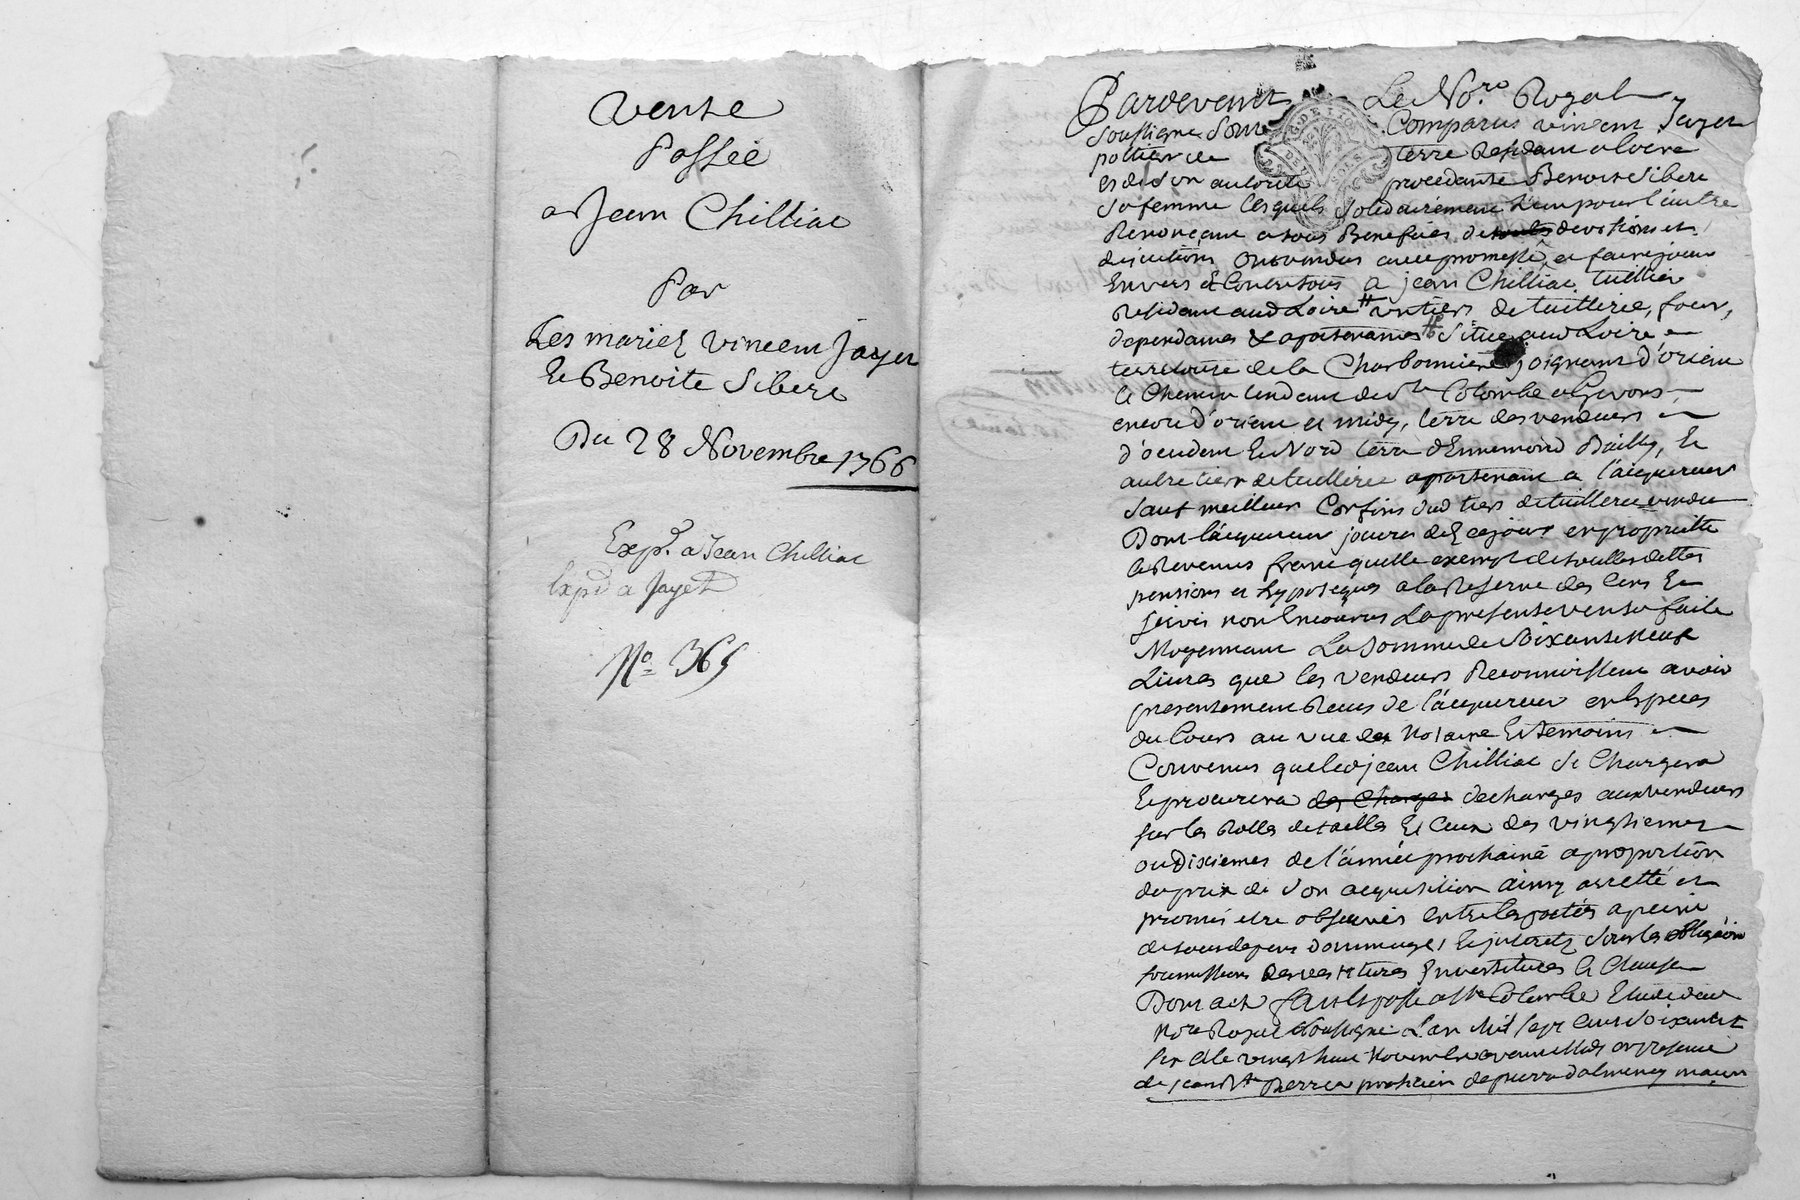 vente
Passée
a Jean Chilliac
Par
Les mariez vincent Jayet
Et Benoite Sibere
Du 28 Novembre 1766
Exp.d a Jean Chilliac
Expd a Jayet
No 365
Pardevent Le No.re Royal
Soussigné Comparus vincent Jayet
pottier de terre Residant a loire
et de son autorité procedante Benoite Sibere
Sa femme lesquels solidairement l'un pour l'autre
Renonçant a tous Benefices de toutes devotions et
discutions ont vendus avec promesse de faire jouir
Envers & Contre tous a jean Chilliac tuillier
Residant aud Loire # un tiers de tuillerie, four,
dependances & apartenances # Situé aud Loire,
territoire de la Charbonniere joignant d'orient
le Chemin tendant de Ste Colombe a Givors,
encore d'orient et midy, terre des vendeurs
d'occident Et Nord terre d'Ennemond Bailly, Et
autre tier de tuillerie apartenant a l'acquereur
Sauf meilleurs Confins dud tiers de tuillerie vendu
Dont l'acquereur jouira dez ce jour en propriette
et Revenus franc quitte exempt de touttes dettes
pensions et hypoteques a la Reserve des Cens Et
servis non Encourus La presente vente faite
Moyennant La Somme de Soixante Neuf
Livres que les vendeurs Reconnoissent avoir
presentement Recus de l'acquereur en Especes
du Cours au vue des Notaire Et temoins
Convenus que led jean Chilliac se Chargera
Et procurera des Charges decharges aux vendeurs
sur les Rolles de tailles Et Ceux des vingtiemes
ou Dixiemes de l'année prochaine a proportion
du prix de son acquisition ainsy arretté et
promis etre observés entre les parties a peine
de tous depens dommages Et interets sous les obligâon
soumissions Renonciations Investitures & Clauses
Dont acte fait & passé a Ste Colombe Etude dud
Nore Royal Soussigné L'an Mil sept Cent Soixante
Six & le vingt huit Novembre avant Midy en presence
de jean Bte Pierre praticien de pierre dalmency maçon